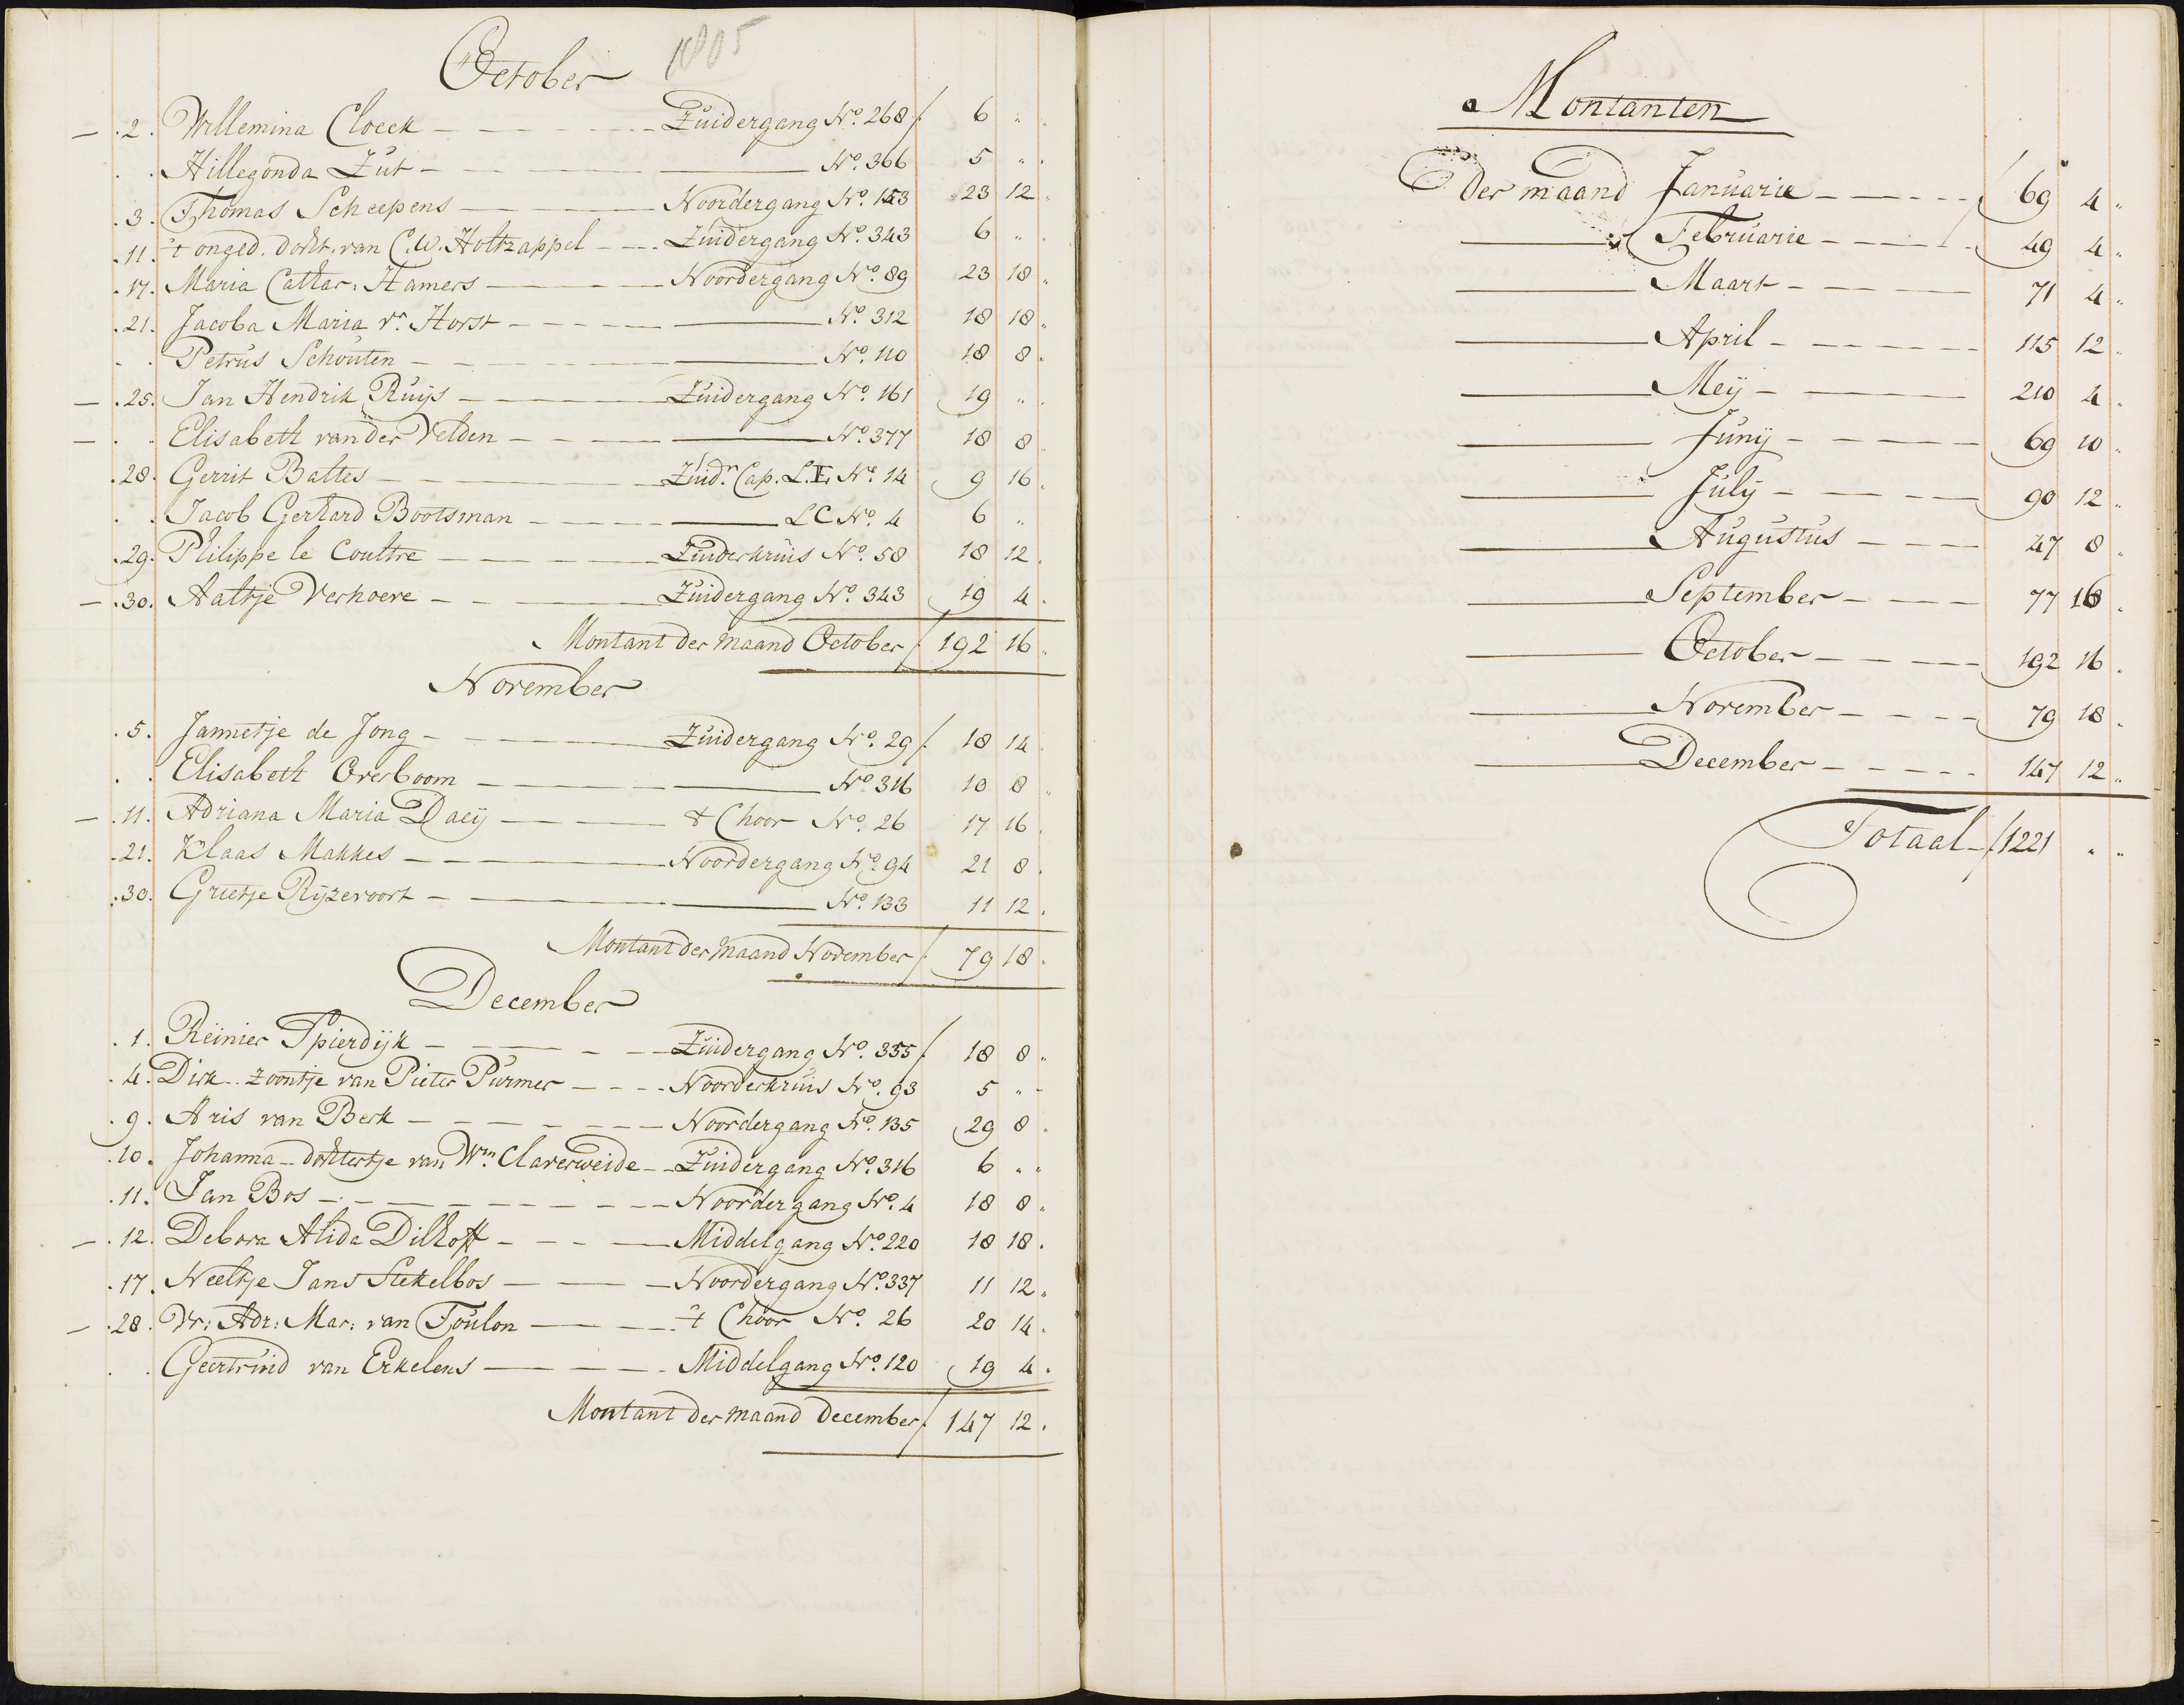 October 1805
— . 2. Willemina Cloeck — Zuidergang No. 268 ƒ 6 " .
. . Hillegonda Zut — — No. 366 5 " .
. 3. Thomas Scheepens — Noordergang No. 153 23 12 .
. 11. 't onged. docht. van C.W. Holtzappel — Zuidergang No. 343 6 " .
. 17. Maria Cathar: Hamers — Noordergang No. 89 23 18 .
. 21. Jacoba Maria vr. Horst — — No. 312 18 18 .
. . Petrus Schouten — — No. 110 18 8 .
— . 25. Jan Hendrik Ruijs — Zuidergang No. 161 19 " .
— . . Elisabeth van der Velden — — No. 377 18 8 .
. 28. Gerrit Baltes — Zuidr. Cap. L. E. No. 14 9 16 .
. . Jacob Gerhard Bootsman — — L C No. 4 6 " .
. 29. Philippe le Coultre — Zuiderkruis No. 58 18 12 .
— . 30. Aaltje Verhoeve — Zuidergang No. 343 19 4 .
Montant der maand October ƒ 192 16 .
November
. 5. Jannetje de Jong — Zuidergang No. 29 ƒ 18 14 .
. . Elisabeth Overboom — — No. 316 10 8 .
— . 11. Adriana Maria Daeij — 't Choor No. 26 17 16 .
. 21. Klaas Makkes — Noordergang No. 94 21 8 .
. 30. Grietje Rijzevoort — — No. 133 11 12 .
Montant der maand November ƒ 79 18 .
December
. 1. Reinier Spierdijk — Zuidergang No. 355 ƒ 18 8 .
. 4. Dirk zoontje van Pieter Purmer — Noorderkruis No. 93 5 " .
. 9. Aris van Berk — Noordergang No. 135 29 8 .
. 10. Johanna dochtertje van Wm. Claverweide — Zuidergang No. 316 6 " .
. 11. Jan Bos — Noordergang No. 4 18 8 .
— . 12. Debora Alida Dilhoff — Middelgang No. 220 18 18 .
. 17. Neeltje Jans Stekelbos — Noordergang No. 337 11 12 .
— . 28. Vr: Adr: Mar: van Toulon — 't Choor No. 26 20 14 .
. . Geertruid van Erkelens — Middelgang No. 120 19 4 .
Montant der maand December ƒ 147 12 .
Montanten
Der maand Januarie — ƒ 69 4 .
— Februarie — 49 4 .
— Maart — 71 4 .
— April — 115 12 .
— Meij — 210 4 .
— Junij — 69 10 .
— Julij — 90 12 .
— Augustus — 47 8 .
— September — 77 16 .
— October — 192 16 .
— November — 79 18 .
— December — 147 12 .
Totaal — ƒ 1221 " .